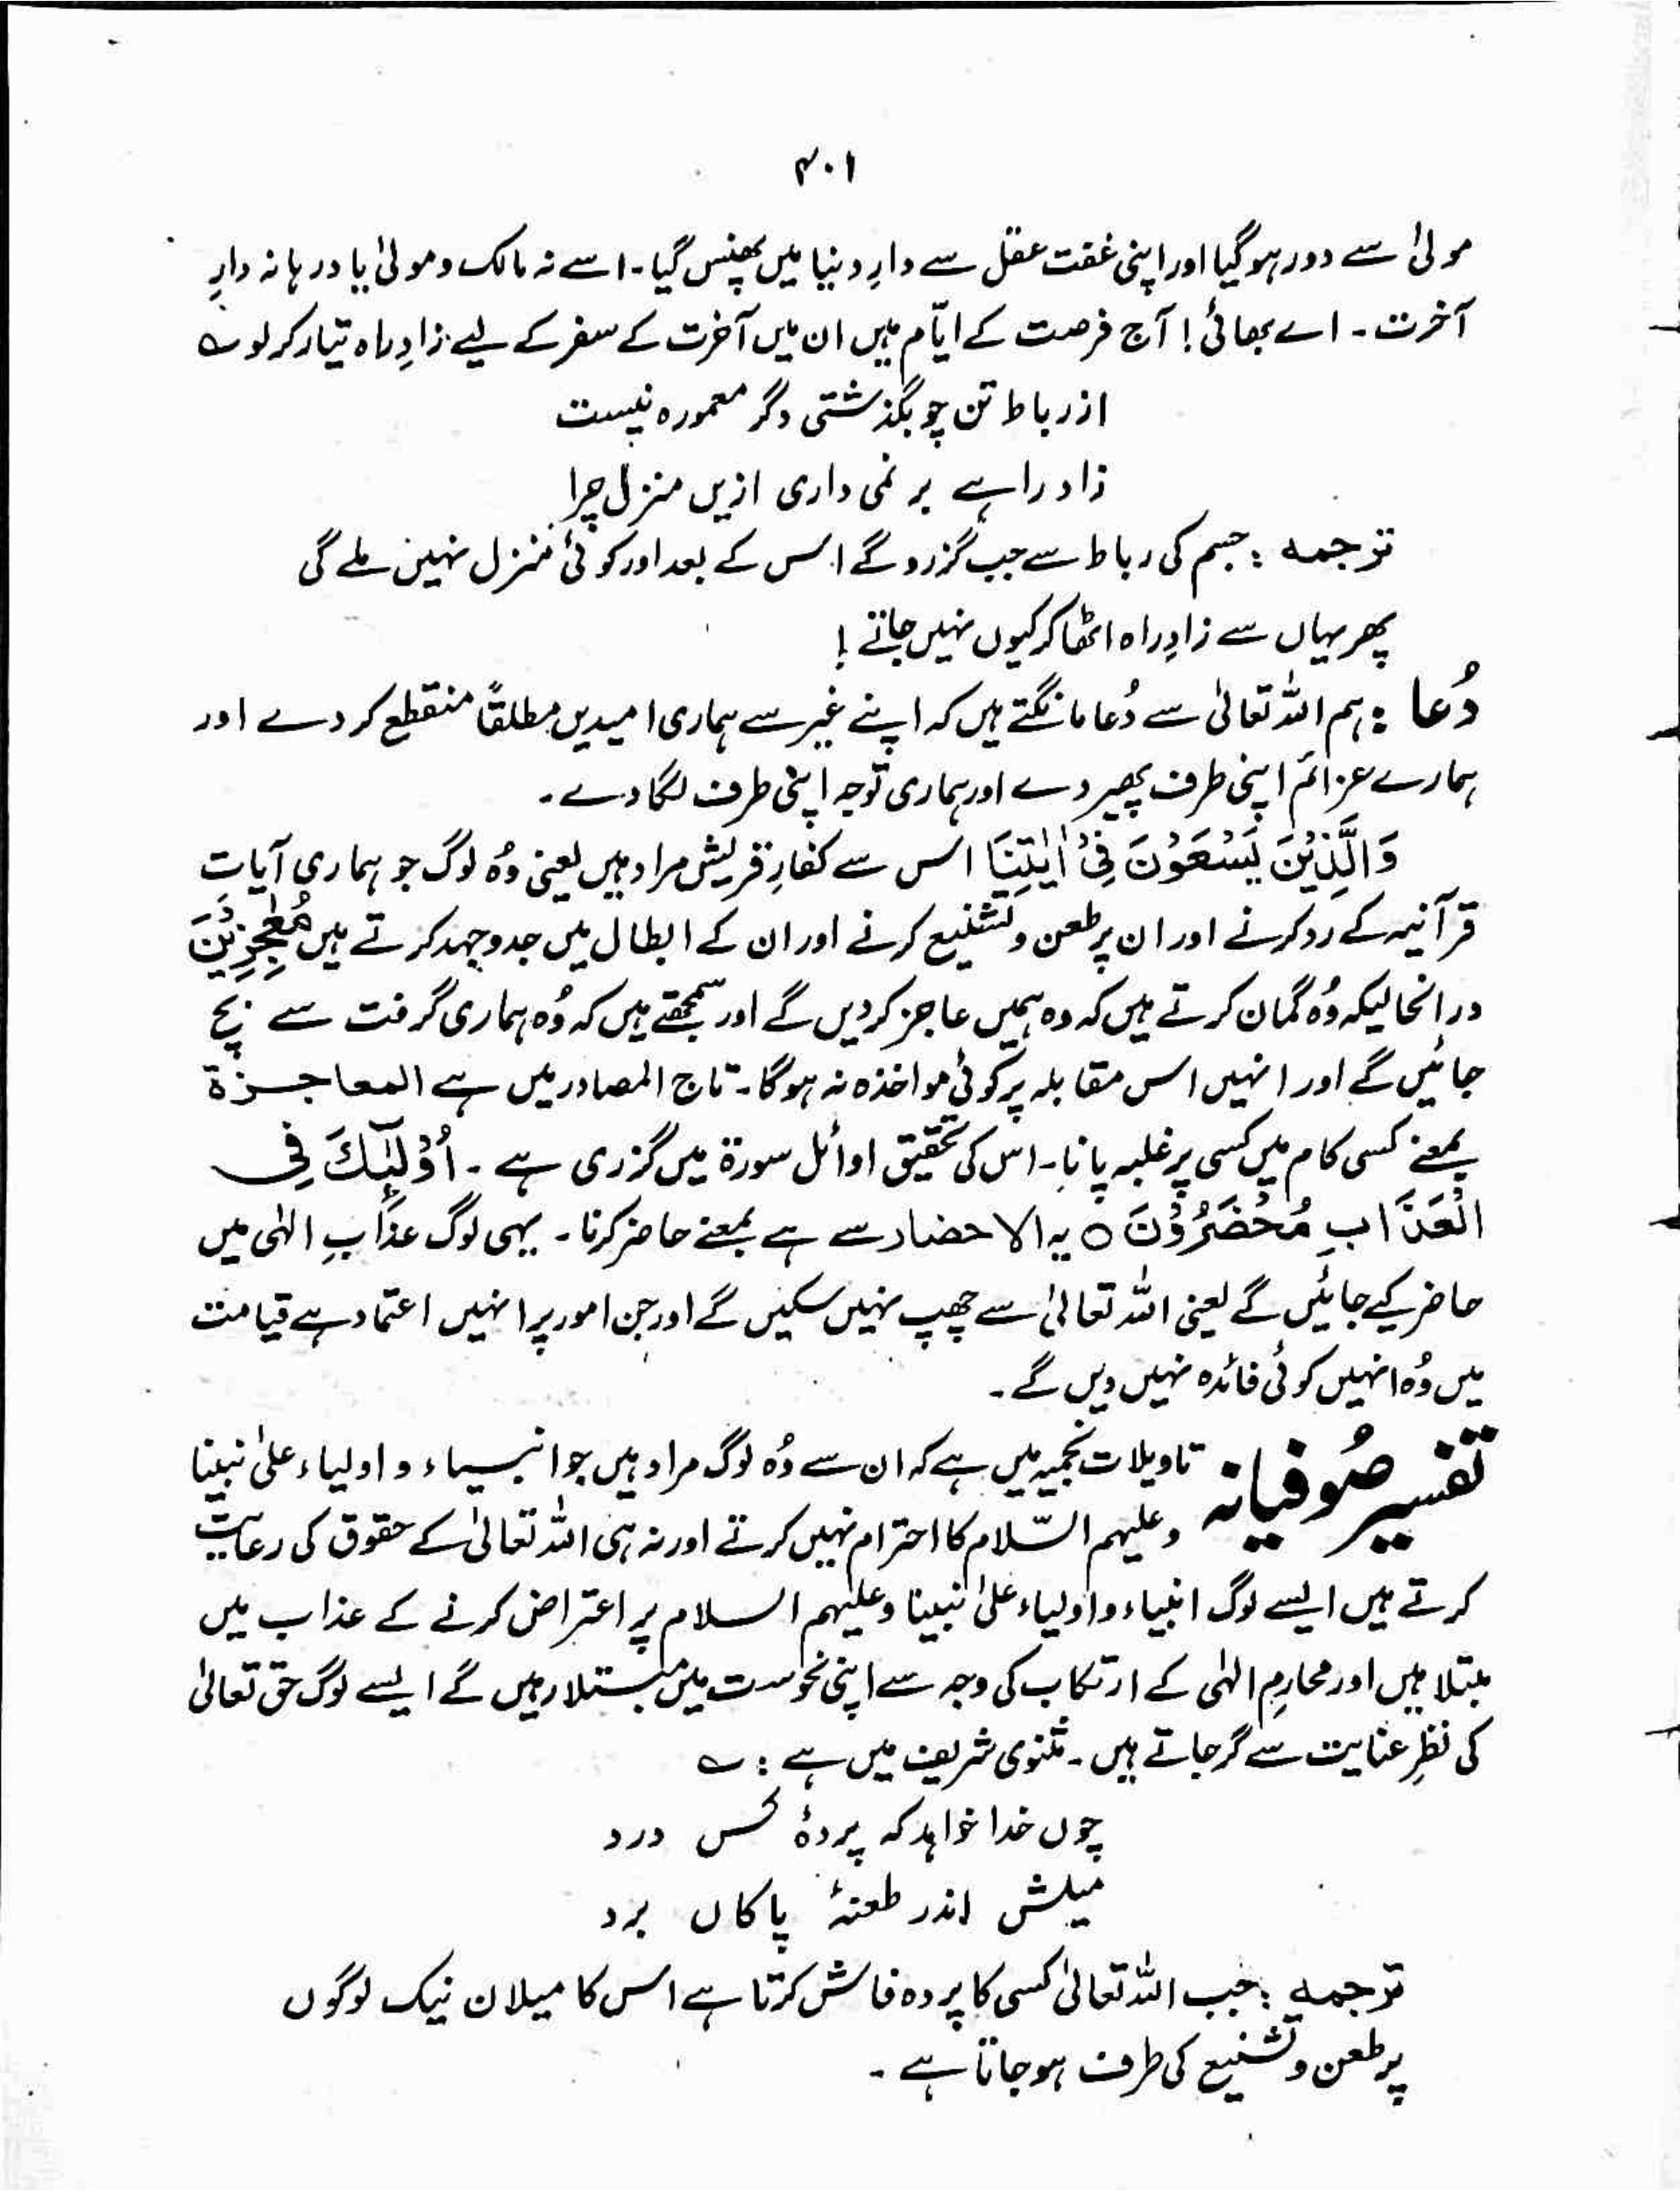 ۴۰۱
مولیٰ سے دور ہو گیا اور اپنی غفت عقل سے دارِ دنیا میں پھنس گیا۔ اسے نہ مالک و مولیٰ یا در ہا نہ دارِ
آخرت۔ اے بھائی! آج فرصت کے ایّام ہیں ان میں آخرت کے سفر کے لیے زادِ راہ تیار کر لو ؎
از رباط تن چو بگذشتی دگر معمورہ نیست
زاد راہے بر نمی داری ازیں منزل چرا
ترجمہ : جسم کی رباط سے جب گزرو گے اس کے بعد اور کوئی منزل نہیں ملے گی
پھر یہاں سے زادِ راہ اٹھا کر کیوں نہیں جاتے!
دُعا : ہم اللہ تعالیٰ سے دُعا مانگتے ہیں کہ اپنے غیر سے ہماری امیدیں مطلقاً منقطع کر دے اور
ہمارے عزائم اپنی طرف پھیر دے اور ہماری توجہ اپنی طرف لگا دے۔
وَالَّذِيْنَ يَسْعَوْنَ فِیْۤ اٰيٰتِنَا اس سے کفارِ قریش مراد ہیں یعنی وُہ لوگ جو ہماری آیاتِ
قرآنیہ کے رد کرنے اور ان پر طعن و تشنیع کرنے اور ان کے ابطال میں جد و جہد کرتے ہیں مُعٰجِزِيْنَ
درانحالیکہ وُہ گمان کرتے ہیں کہ وہ ہمیں عاجز کر دیں گے اور سمجھتے ہیں کہ وُہ ہماری گرفت سے بچ
جائیں گے اور انہیں اس مقابلہ پر کوئی مواخذہ نہ ہو گا۔ تاج المصادر میں ہے المعاجزۃ
بمعنے کسی کام میں کسی پر غلبہ پانا۔ اس کی تحقیق اوائل سورۃ میں گزری ہے۔ اُولٰٓئِكَ فِی
الْعَذَابِ مُحْضَرُوْنَ ○ یہ الاحضار سے ہے بمعنے حاضر کرنا۔ یہی لوگ عذابِ الٰہی میں
حاضر کیے جائیں گے یعنی اللہ تعالیٰ سے چھپ نہیں سکیں گے اور جن امور پر انہیں اعتماد ہے قیامت
میں وُہ انہیں کوئی فائدہ نہیں دیں گے۔
تفسیر صُوفیانہ تاویلات نجمیہ میں ہے کہ ان سے وُہ لوگ مراد ہیں جو انبیاء و اولیاء علیٰ نبینا
وعلیہم السّلام کا احترام نہیں کرتے اور نہ ہی اللہ تعالیٰ کے حقوق کی رعایت
کرتے ہیں ایسے لوگ انبیاء و اولیاء علیٰ نبینا وعلیہم السلام پر اعتراض کرنے کے عذاب میں
مبتلا ہیں اور محارمِ الٰہی کے ارتکاب کی وجہ سے اپنی نحوست میں مبتلا رہیں گے ایسے لوگ حق تعالیٰ
کی نظرِ عنایت سے گر جاتے ہیں۔ مثنوی شریف میں ہے : ؎
چوں خدا خواہد کہ پردۂ کس درد
میلش اندر طعنۂ پاکاں برد
ترجمہ : جب اللہ تعالیٰ کسی کا پردہ فاش کرتا ہے اس کا میلان نیک لوگوں
پر طعن و تشنیع کی طرف ہو جاتا ہے۔